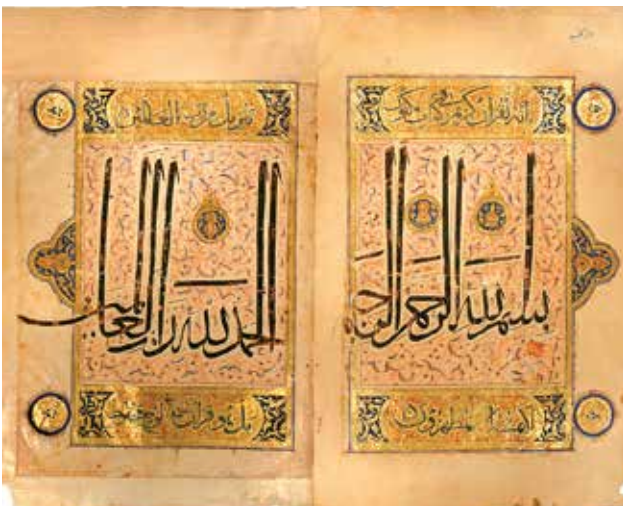 انه لقران كريم في كتاب مكنون
بسم الله الرحمن الرحيم
لا يمسه الا المطهرون
تنزيل من رب العالمين
الحمد لله رب العالمين
بل هو قران